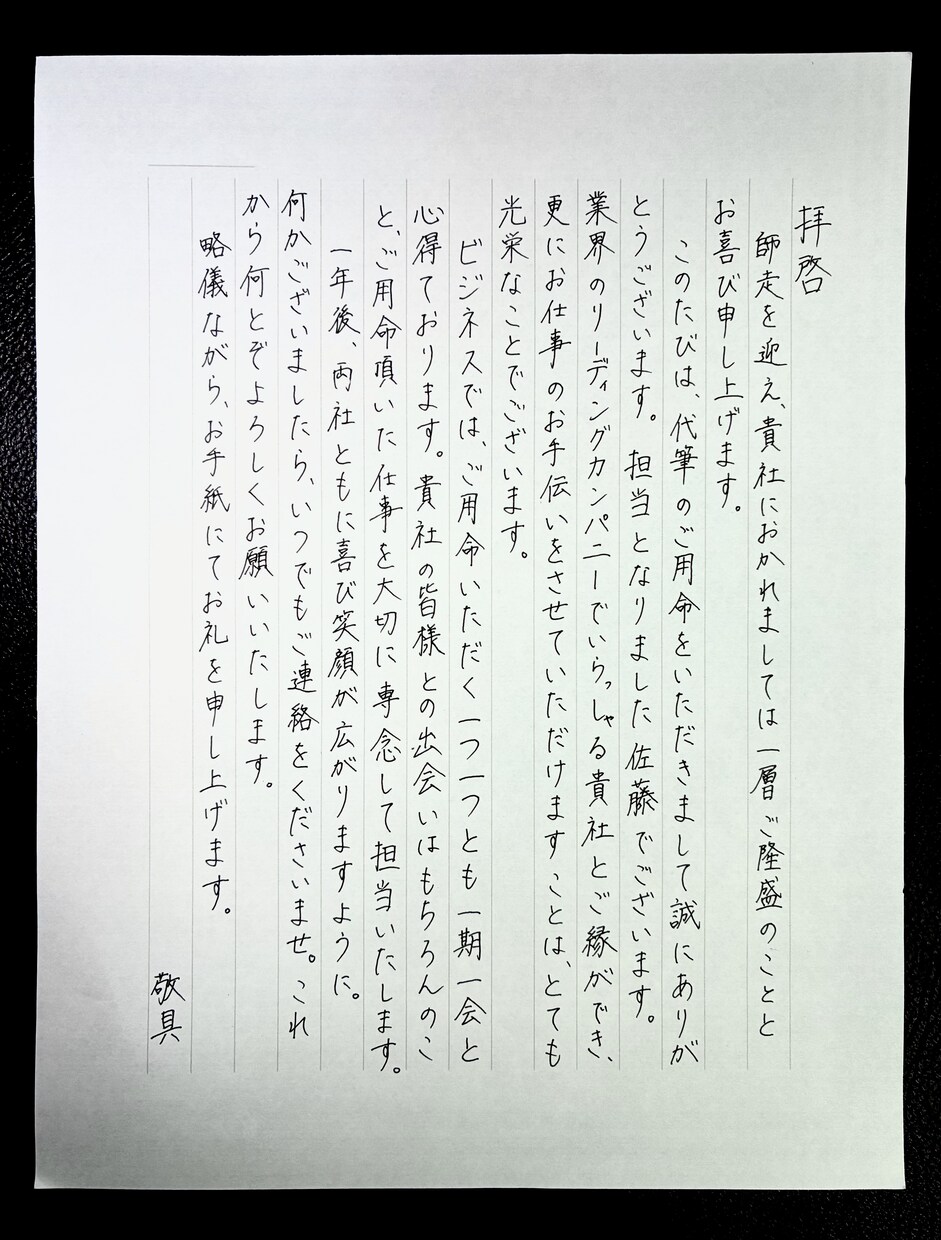 拝啓
師走を迎え、貴社におかれましては一層ご隆盛のことと
お喜び申し上げます。
このたびは、代筆のご用命をいただきまして誠にありが
とうございます。担当となりました佐藤でございます。
業界のリーディングカンパニーでいらっしゃる貴社とご縁ができ、
更にお仕事のお手伝いをさせていただけますことは、とても
光栄なことでございます。
ビジネスでは、ご用命いただく一つ一つとも一期一会と
心得ております。貴社の皆様との出会いはもちろんのこ
と、ご用命頂いた仕事を大切に専念して担当いたします。
一年後、両社ともに喜び笑顔が広がりますように。
何かございましたら、いつでもご連絡をくださいませ。これ
から何とぞよろしくお願いいたします。
略儀ながら、お手紙にてお礼を申し上げます。
敬具